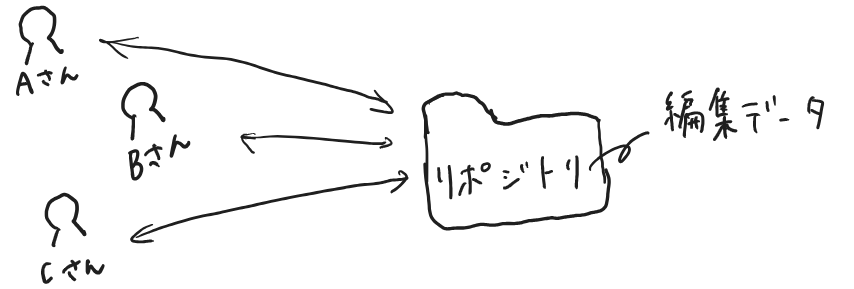 Aさん
Bさん
Cさん
リポジトリ
編集データ